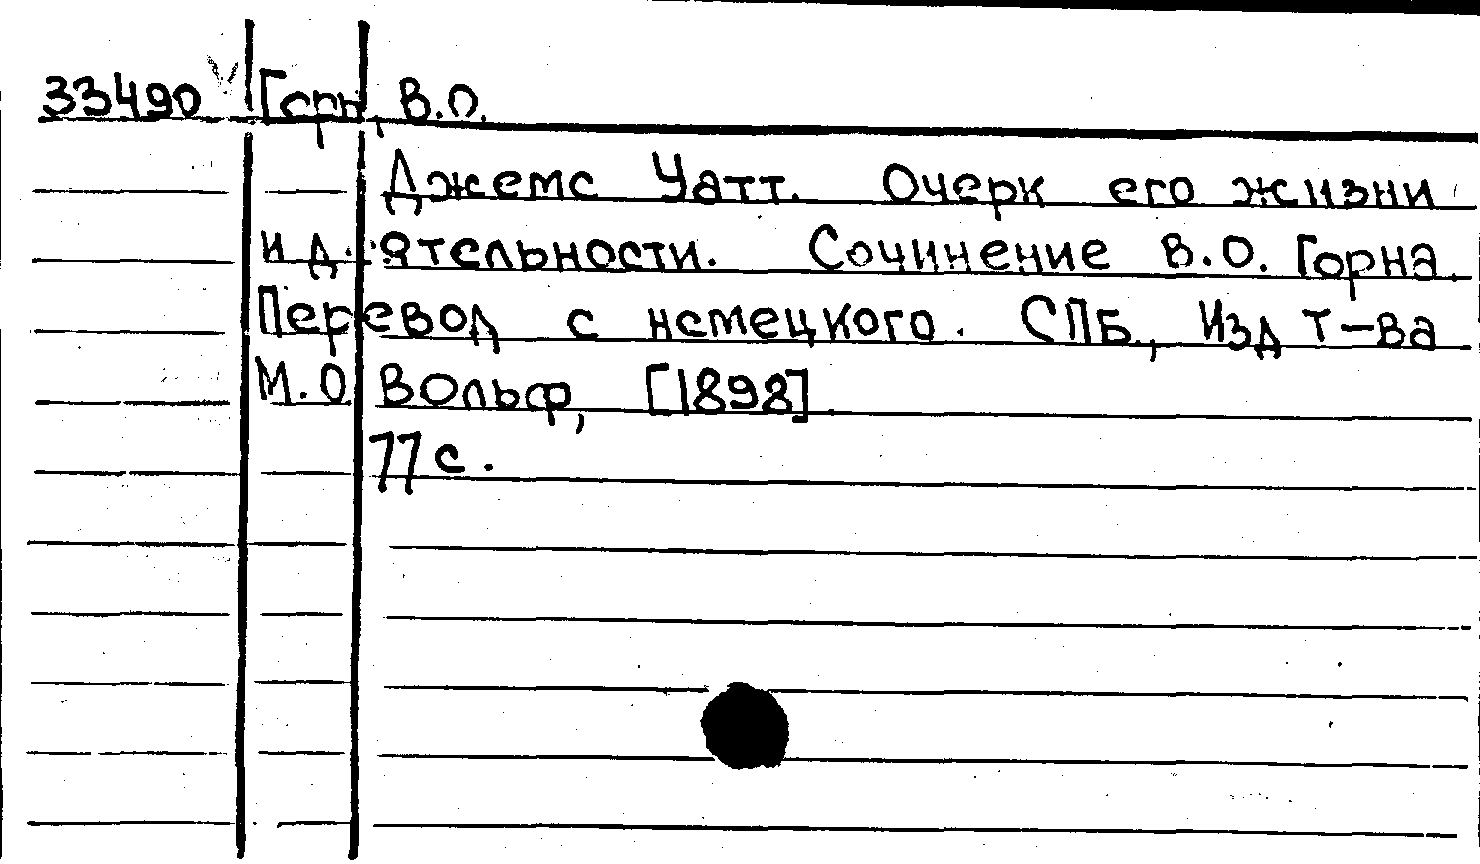 33490 Горн, В.О.
Джемс Уатт. Очерк его жизни
и деятельности. Сочинение В.О. Горна.
Перевод с немецкого. СПБ., Изд т-ва
М.О Вольф, [1898].
77 с.